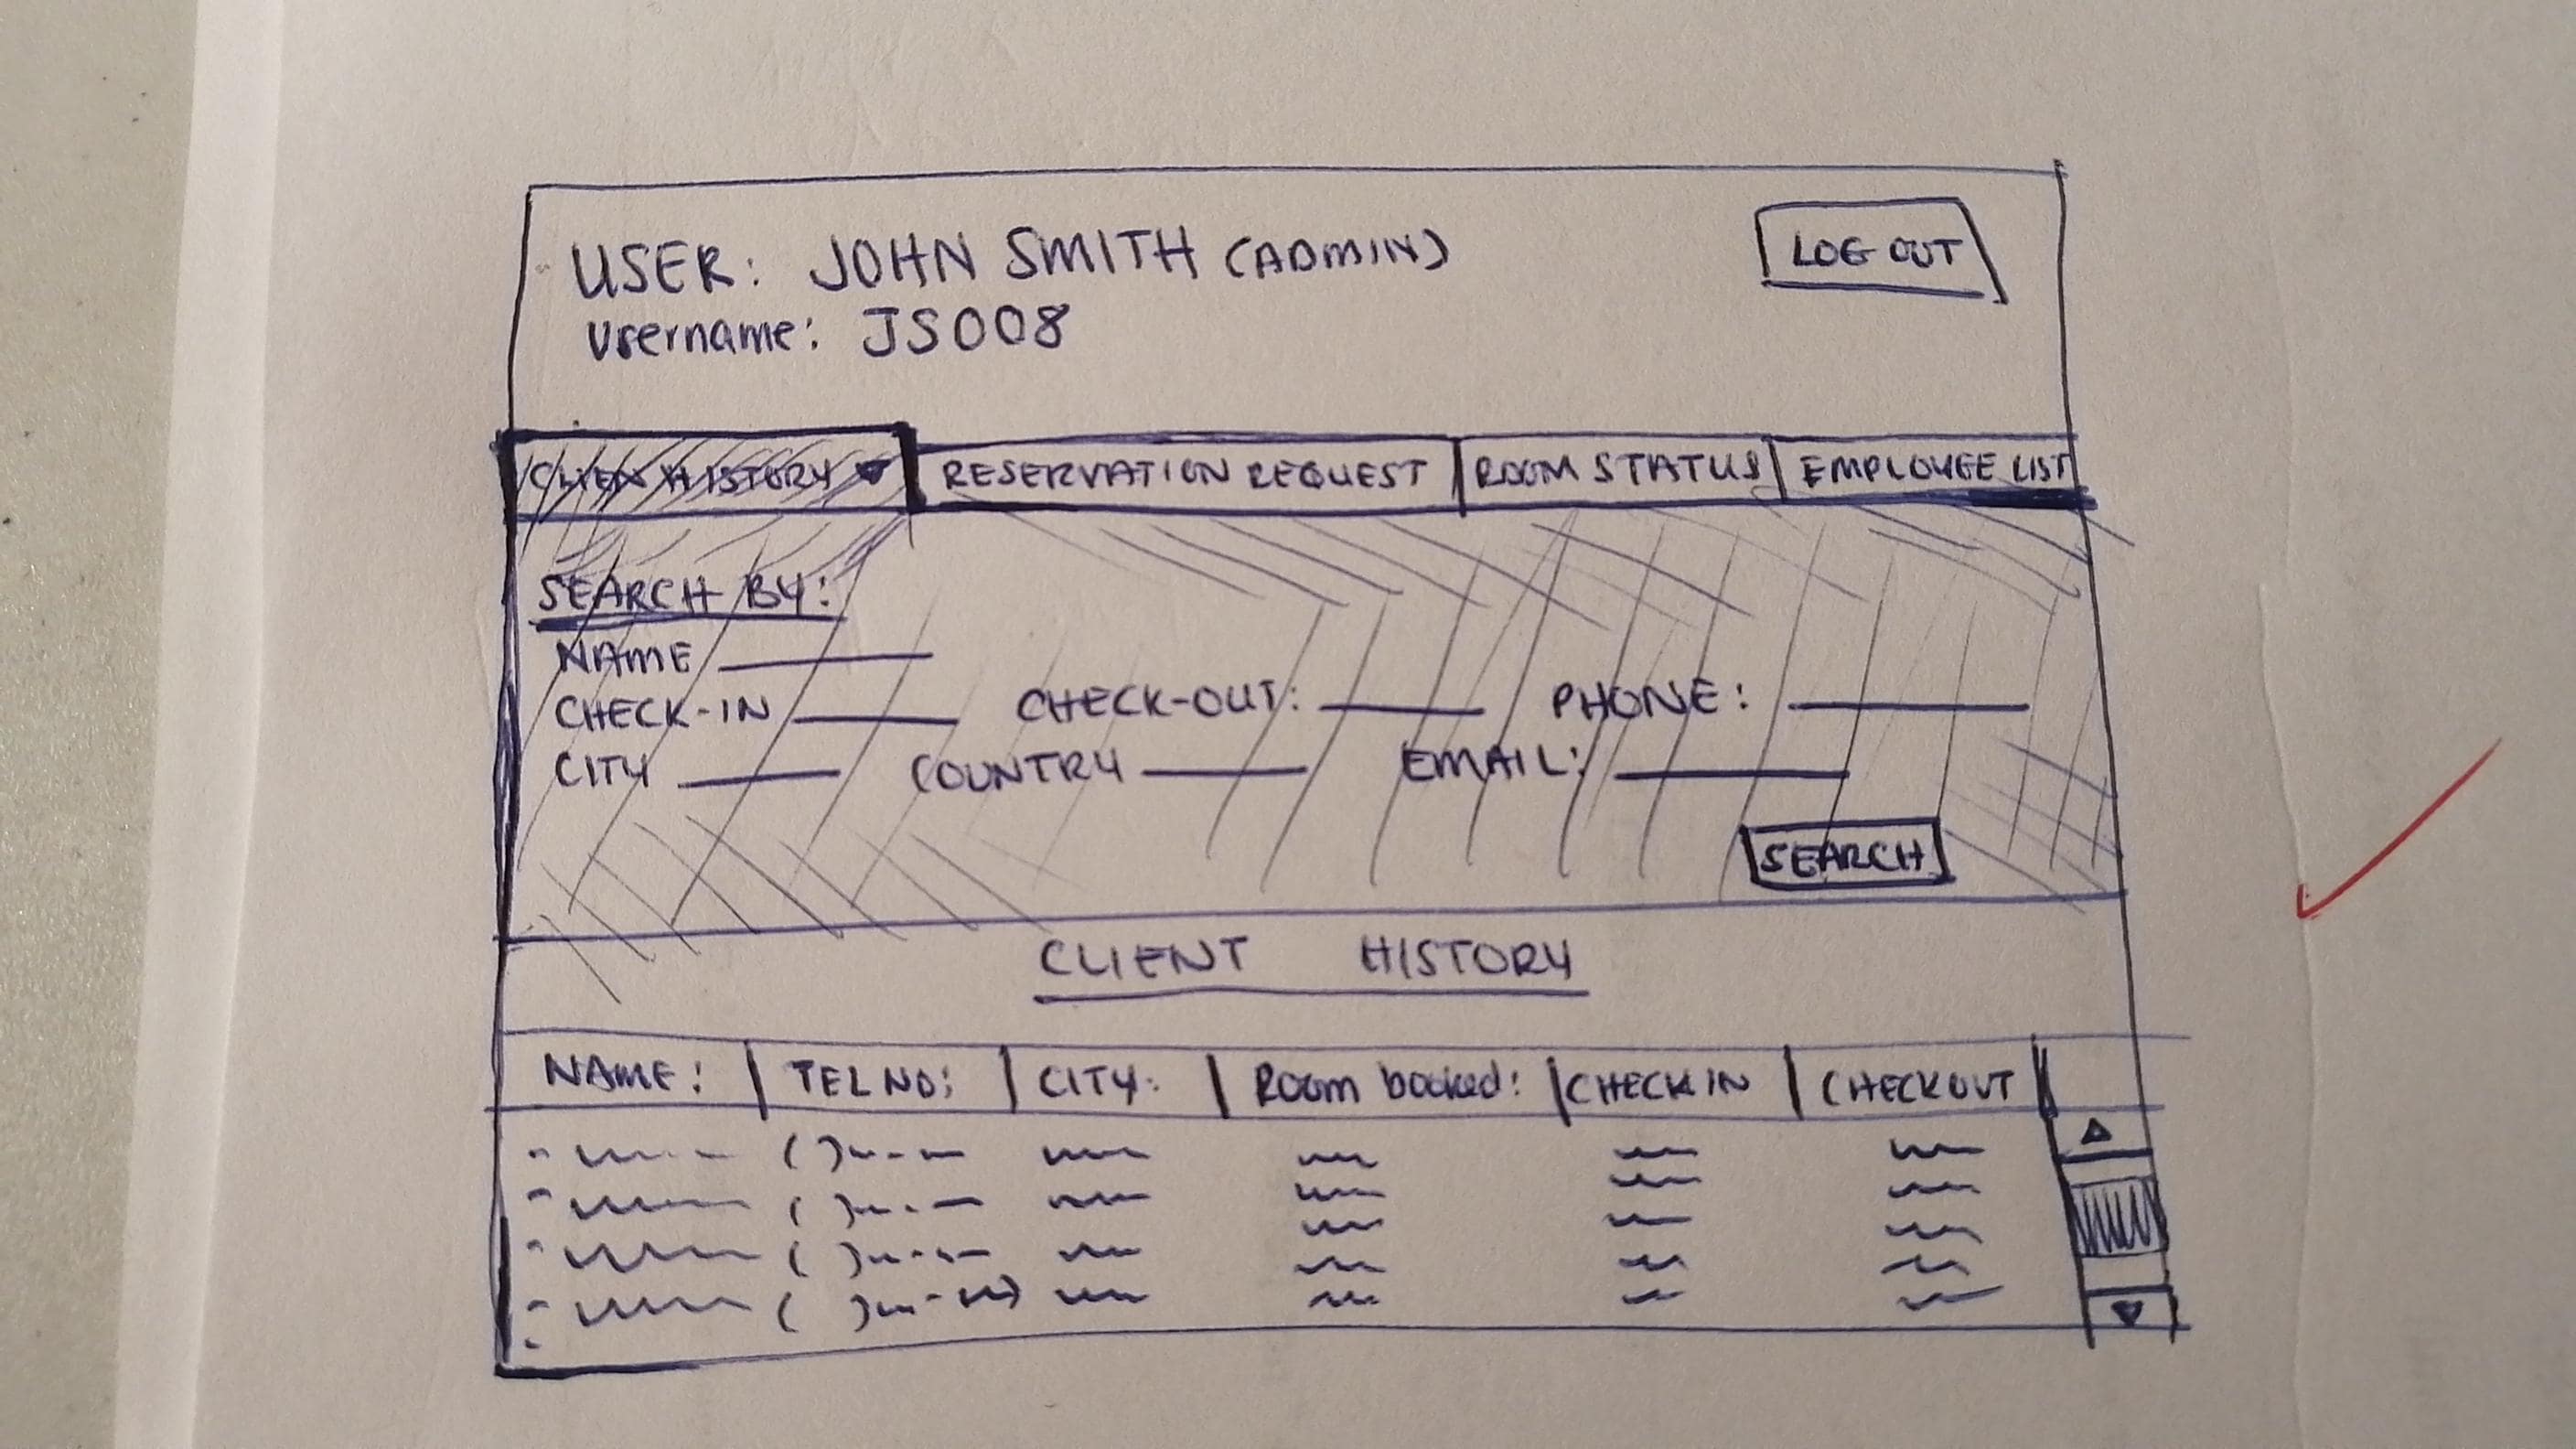 USER: JOHN SMITH (ADMIN)
LOG OUT
Username: JS008
CLIENT HISTORY
RESERVATION REQUEST
ROOM STATUS
EMPLOYEE LIST
SEARCH BY:
NAME
CHECK-IN CHECK-OUT: PHONE:
CITY COUNTRY EMAIL:
SEARCH
CLIENT HISTORY
NAME: TEL NO: CITY: ROOM booked: CHECK IN CHECKOUT